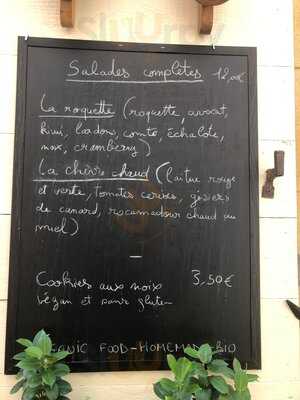 Salades complètes 12,00€
La roquette (roquette, avocat,
kiwi, lardons, comté, échalote,
noix, cramberry)
La chèvre chaud (laitue rouge
et verte, tomates cerises, gésiers
de canard, rocamadour chaud au
miel)
Cookies aux noix 3,50€
végan et sans gluten
GANIC FOOD - HOMEMADE - BIO